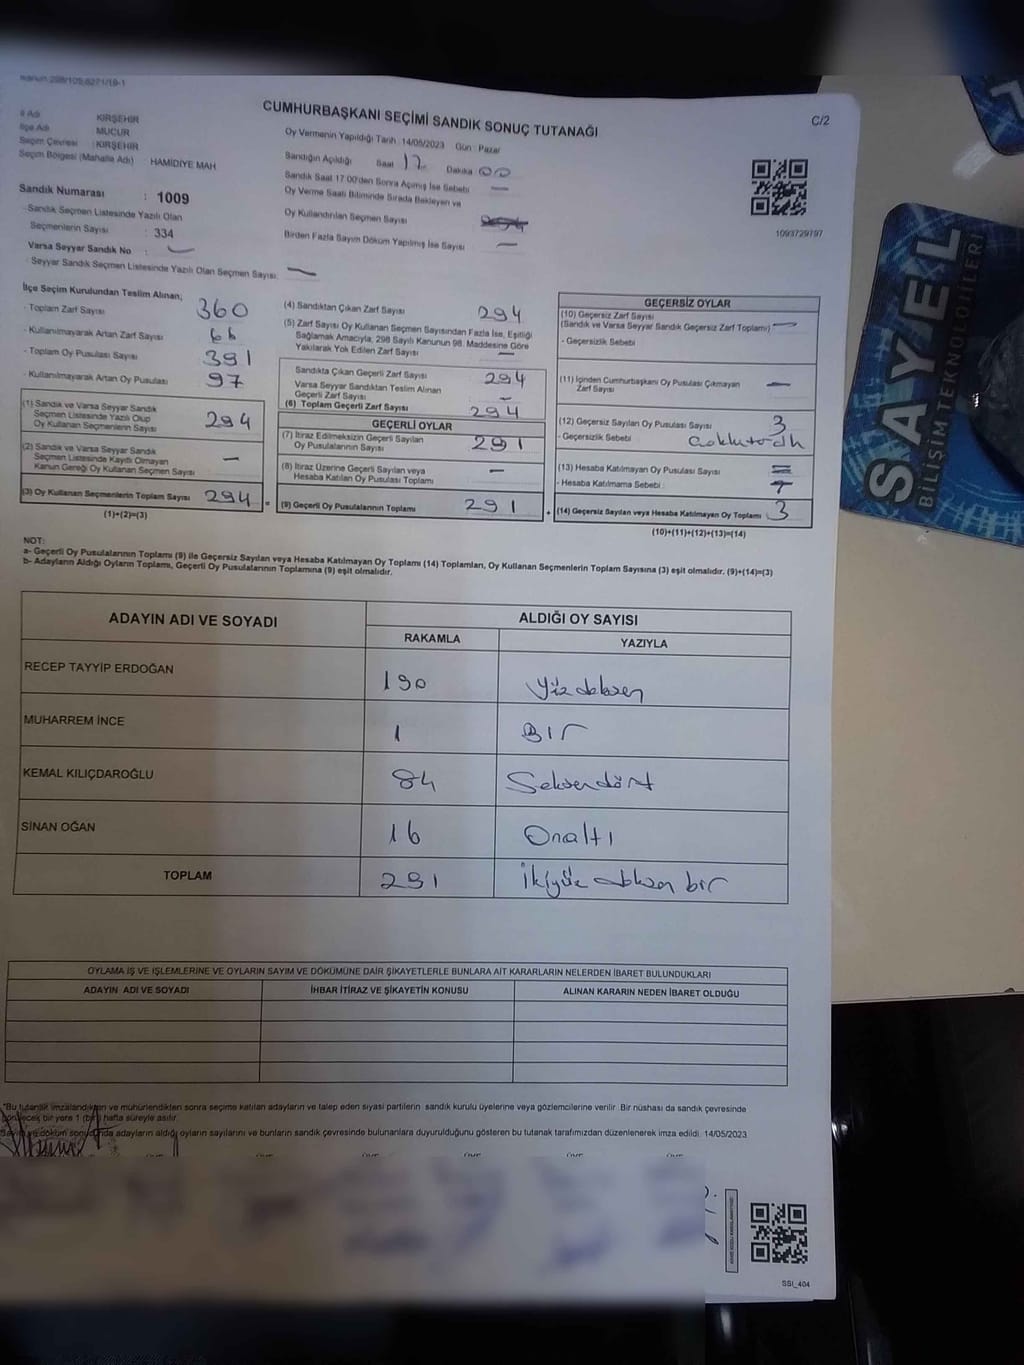 Kanun:298/105;6271/19-1
CUMHURBAŞKANI SEÇİMİ SANDIK SONUÇ TUTANAĞI
C/2
İl Adı KIRŞEHİR
İlçe Adı MUCUR
Seçim Çevresi : KIRŞEHİR
Seçim Bölgesi (Mahalle Adı) HAMİDİYE MAH
Sandık Numarası : 1009
- Sandık Seçmen Listesinde Yazılı Olan
Seçmenlerin Sayısı : 334
Varsa Seyyar Sandık No : -
- Seyyar Sandık Seçmen Listesinde Yazılı Olan Seçmen Sayısı: -
Oy Vermenin Yapıldığı Tarih :14/05/2023 Gün : Pazar
Sandığın Açıldığı Saat 17 Dakika 00
Sandık Saat 17:00'den Sonra Açımış İse Sebebi -
Oy Verme Saati Bitiminde Sırada Bekleyen ve
Oy Kullandırılan Seçmen Sayısı
Birden Fazla Sayım Döküm Yapılmış İse Sayısı -
1093729797
İlçe Seçim Kurulundan Teslim Alınan;
- Toplam Zarf Sayısı 360
- Kullanılmayarak Artan Zarf Sayısı 66
- Toplam Oy Pusulası Sayısı 391
- Kullanılmayarak Artan Oy Pusulası 97
(1) Sandık ve Varsa Seyyar Sandık
Seçmen Listesinde Yazılı Olup
Oy Kullanan Seçmenlerin Sayısı 294
(2) Sandık ve Varsa Seyyar Sandık
Seçmen Listesinde Kayıtlı Olmayan
Kanun Gereği Oy Kullanan Seçmen Sayısı -
(3) Oy Kullanan Seçmenlerin Toplam Sayısı 294 =
(1)+(2)=(3)
(4) Sandıktan Çıkan Zarf Sayısı 294
(5) Zarf Sayısı Oy Kullanan Seçmen Sayısından Fazla İse, Eşitliği
Sağlamak Amacıyla, 298 Sayılı Kanunun 98. Maddesine Göre
Yakılarak Yok Edilen Zarf Sayısı -
Sandıkta Çıkan Geçerli Zarf Sayısı 294
Varsa Seyyar Sandıktan Teslim Alınan
Geçerli Zarf Sayısı -
(6) Toplam Geçerli Zarf Sayısı 294
GEÇERLİ OYLAR
(7) İtiraz Edilmeksizin Geçerli Sayılan
Oy Pusulalarının Sayısı 291
(8) İtiraz Üzerine Geçerli Sayılan veya
Hesaba Katılan Oy Pusulası Toplamı -
(9) Geçerli Oy Pusulalarının Toplamı 291 +
GEÇERSİZ OYLAR
(10) Geçersiz Zarf Sayısı
(Sandık ve Varsa Seyyar Sandık Geçersiz Zarf Toplamı) -
- Geçersizlik Sebebi
(11) İçinden Cumhurbaşkanı Oy Pusulası Çıkmayan
Zarf Sayısı -
(12) Geçersiz Sayılan Oy Pusulası Sayısı 3
- Geçersizlik Sebebi
(13) Hesaba Katılmayan Oy Pusulası Sayısı
- Hesaba Katılmama Sebebi :
(14) Geçersiz Sayılan veya Hesaba Katılmayan Oy Toplamı 3
(10)+(11)+(12)+(13)=(14)
NOT:
a- Geçerli Oy Pusulalarının Toplamı (9) ile Geçersiz Sayılan veya Hesaba Katılmayan Oy Toplamı (14) Toplamları, Oy Kullanan Seçmenlerin Toplam Sayısına (3) eşit olmalıdır. (9)+(14)=(3)
b- Adayların Aldığı Oyların Toplamı, Geçerli Oy Pusulalarının Toplamına (9) eşit olmalıdır.
ADAYIN ADI VE SOYADI
ALDIĞI OY SAYISI
RAKAMLA YAZIYLA
RECEP TAYYİP ERDOĞAN 190 Yüzdoksan
MUHARREM İNCE 1 BİR
KEMAL KILIÇDAROĞLU 84 Seksendört
SİNAN OĞAN 16 Onaltı
TOPLAM 291 İkiyüz doksan bir
OYLAMA İŞ VE İŞLEMLERİNE VE OYLARIN SAYIM VE DÖKÜMÜNE DAİR ŞİKAYETLERLE BUNLARA AİT KARARLARIN NELERDEN İBARET BULUNDUKLARI
ADAYIN ADI VE SOYADI İHBAR İTİRAZ VE ŞİKAYETİN KONUSU ALINAN KARARIN NEDEN İBARET OLDUĞU
*Bu tutanak imzalandıktan ve mühürlendikten sonra seçime katılan adayların ve talep eden siyasi partilerin sandık kurulu üyelerine veya gözlemcilerine verilir. Bir nüshası da sandık çevresinde
görülecek bir yere 1 (bir) hafta süreyle asılır.
Sayım ve döküm sonucunda adayların aldığı oyların sayılarını ve bunların sandık çevresinde bulunanlara duyurulduğunu gösteren bu tutanak tarafımızdan düzenlenerek imza edildi. 14/05/2023
SSI_404
SAYEL
BİLİŞİM TEKNOLOJİLERİ